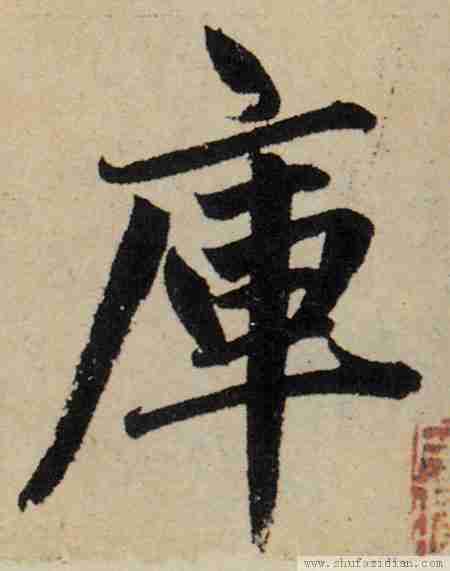 庫
www.shufazidian.com